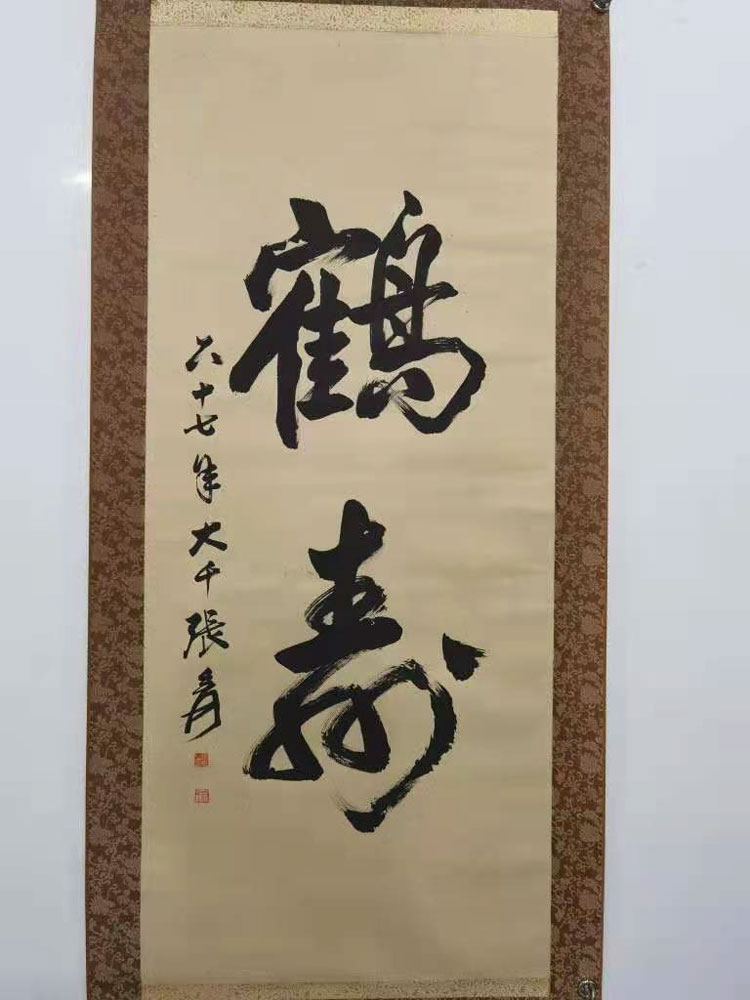 鶴壽
六十七年大千張爰